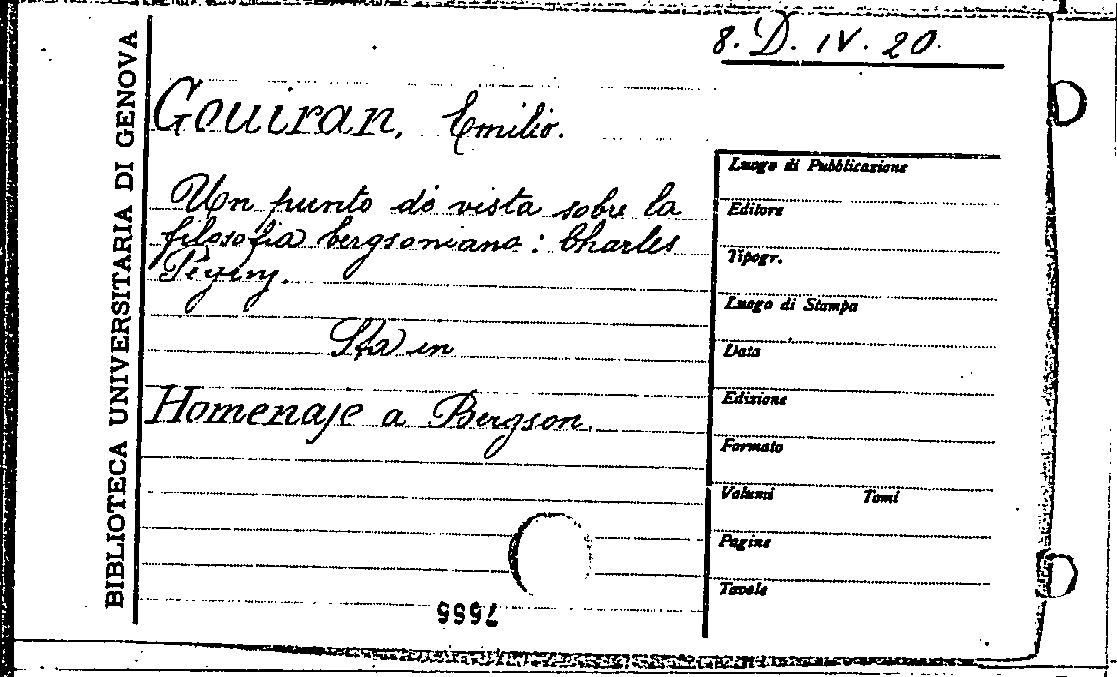 8. D. IV. 20.
BIBLIOTECA UNIVERSITARIA DI GENOVA
Gouiran, Emilio.
Un punto de vista sobre la
filosofia bergsoniana: Charles
Péguy.
Sta in
Homenaje a Bergson.
Luogo di Pubblicazione
Editore
Tipogr.
Luogo di Stampa
Data
Edizione
Formato
Volumi Tomi
Pagine
Tavole